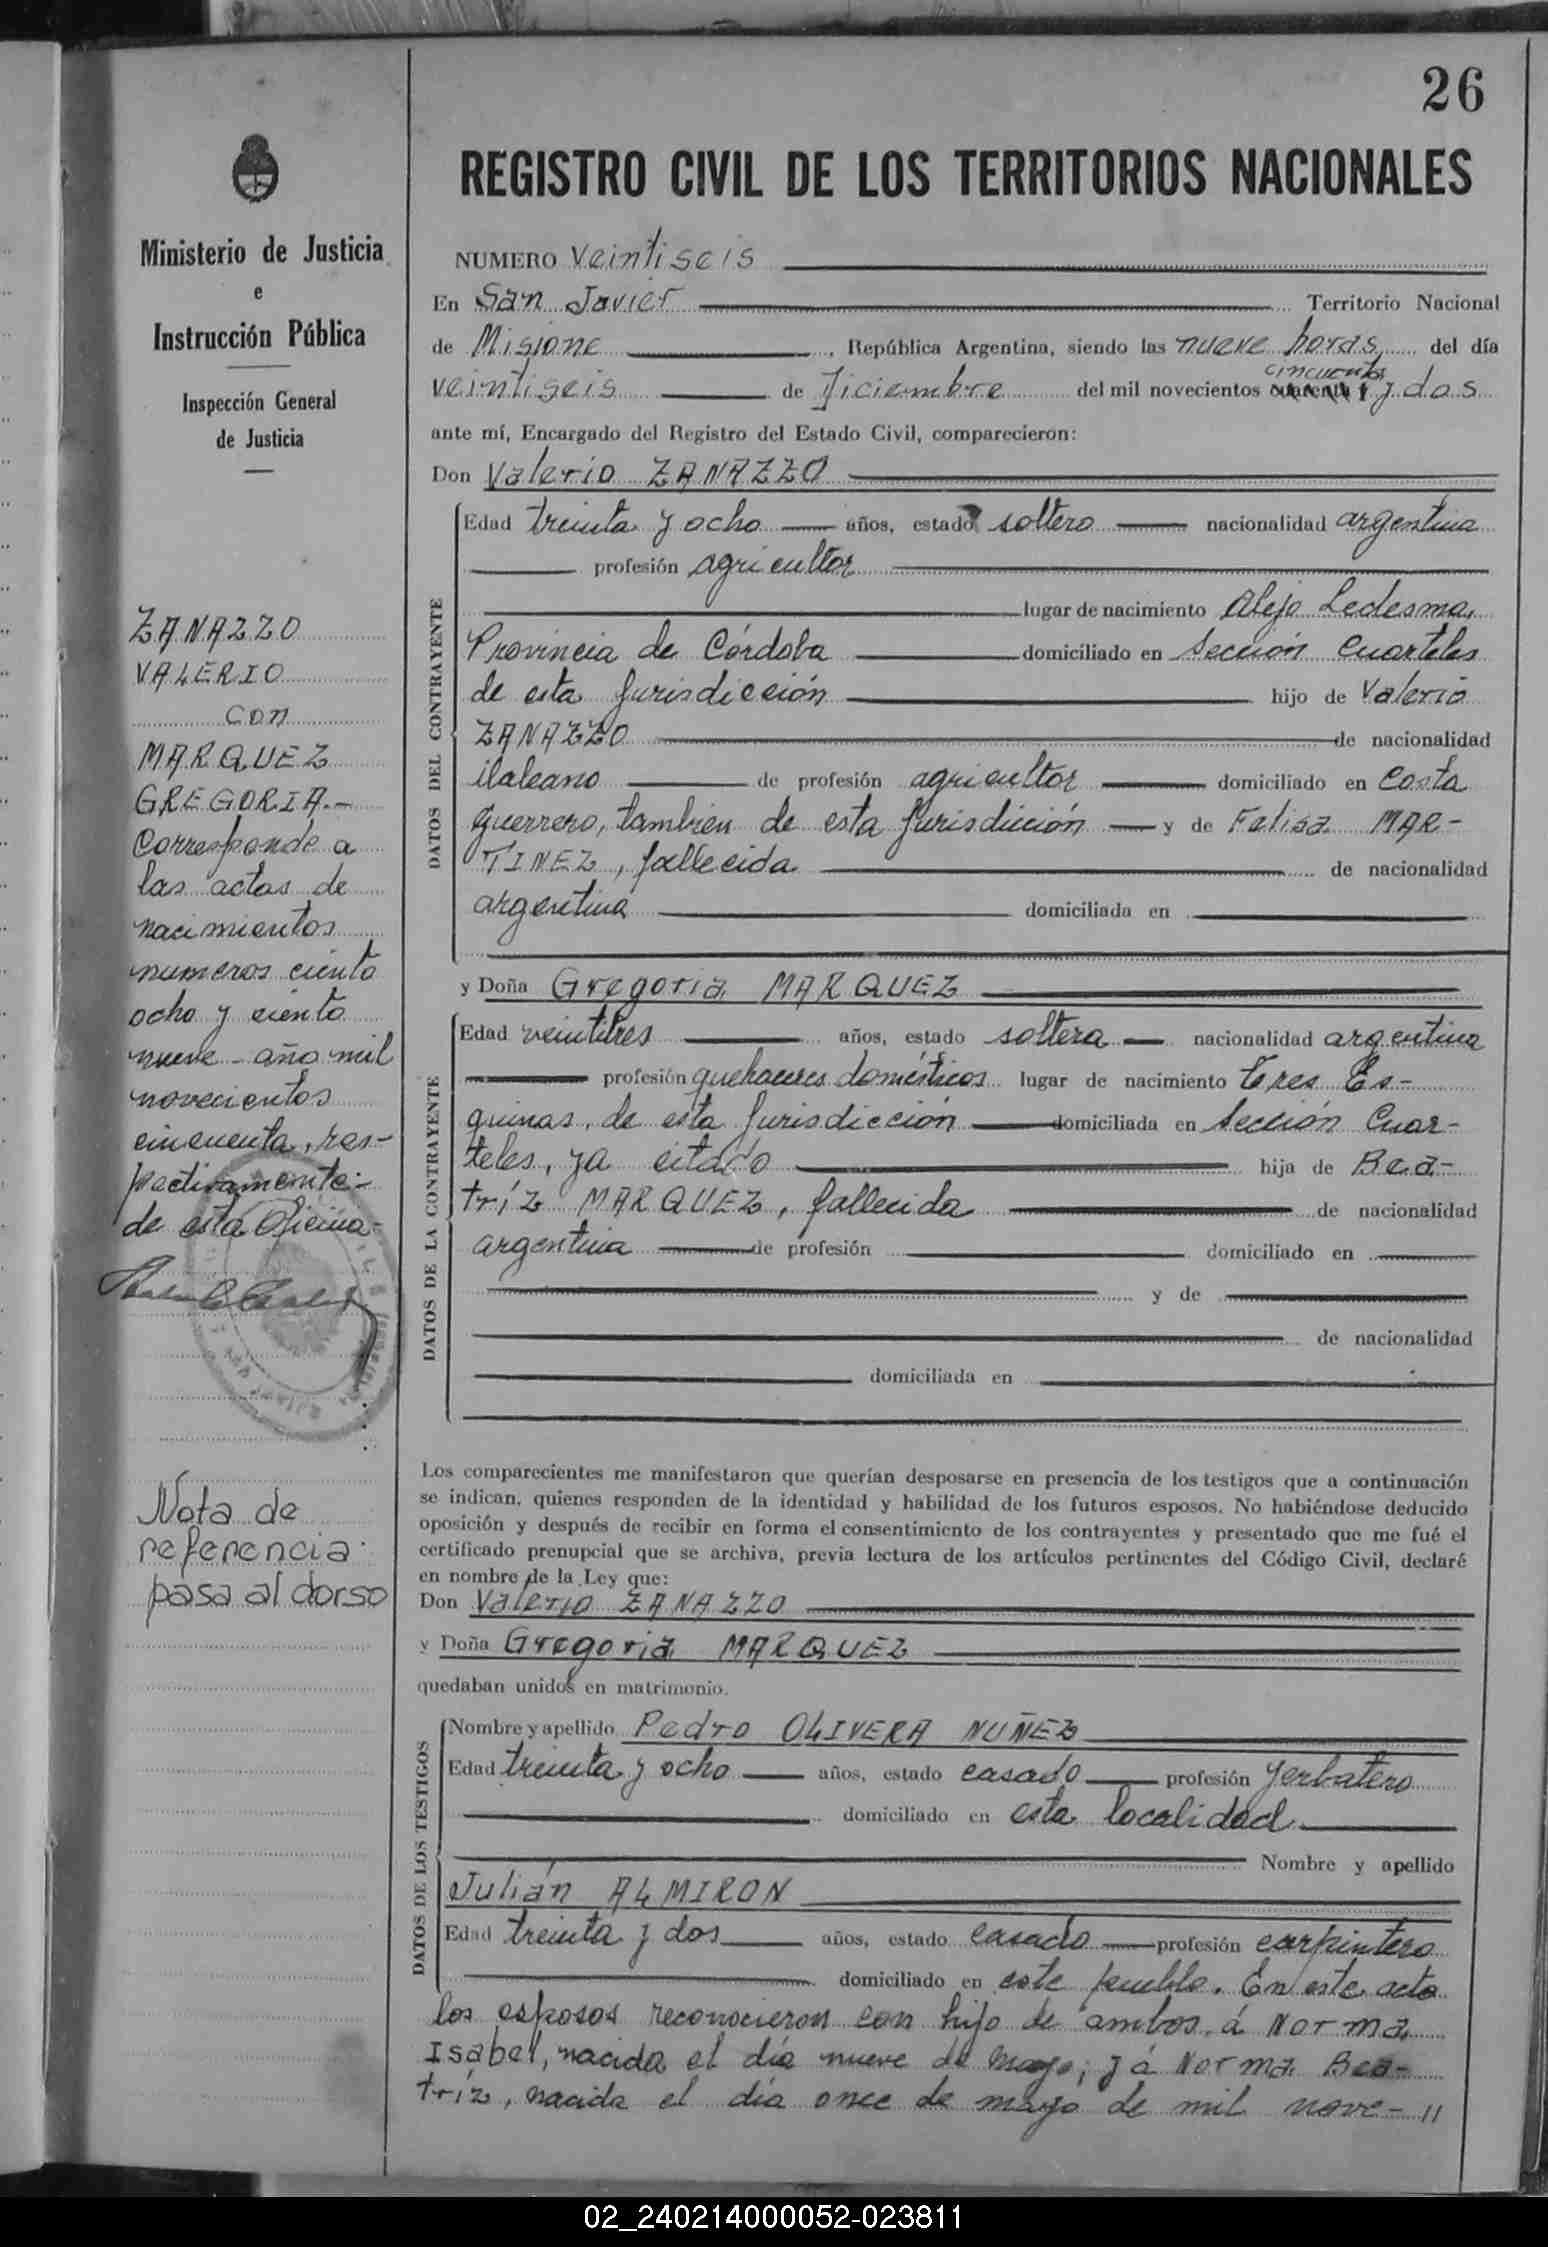 26
REGISTRO CIVIL DE LOS TERRITORIOS NACIONALES
Ministerio de Justicia
e
Instrucción Pública
Inspección General
de Justicia
ZANAZZO
VALERIO
con
MARQUEZ
GREGORIA.-
Corresponde a
las actas de
nacimientos
numeros ciento
ocho y ciento
nueve - año mil
novecientos
cincuenta, res-
pectivamente-
de esta Oficina-
Nota de
referencia
pasa al dorso
NUMERO Veintiseis
En San Javier Territorio Nacional
de Misione, República Argentina, siendo las nueve horas del día
veintiseis de Diciembre del mil novecientos cuarenta y cincuenta y dos
ante mí, Encargado del Registro del Estado Civil, comparecieron:
Don Valerio ZANAZZO
DATOS DEL CONTRAYENTE
Edad treinta y ocho años, estado soltero nacionalidad argentina
profesión agricultor
lugar de nacimiento Alejo Ledesma,
Provincia de Córdoba domiciliado en Sección Cuarteles
de esta Jurisdicción hijo de Valerio
ZANAZZO de nacionalidad
italeano de profesión agricultor domiciliado en Costa
Guerrero, tambien de esta Jurisdicción y de Felisa MAR-
TINEZ, fallecida de nacionalidad
argentina domiciliada en
y Doña Gregoria MARQUEZ
DATOS DE LA CONTRAYENTE
Edad veintitres años, estado soltera nacionalidad argentina
profesión quehaceres domésticos lugar de nacimiento Tres Es-
quinas, de esta Jurisdicción domiciliada en Sección Cuar-
teles, ya citado hija de Bea-
tríz MARQUEZ, fallecida de nacionalidad
argentina de profesión domiciliado en
y de
de nacionalidad
domiciliada en
Los comparecientes me manifestaron que querían desposarse en presencia de los testigos que a continuación
se indican, quienes responden de la identidad y habilidad de los futuros esposos. No habiéndose deducido
oposición y después de recibir en forma el consentimiento de los contrayentes y presentado que me fué el
certificado prenupcial que se archiva, previa lectura de los artículos pertinentes del Código Civil, declaré
en nombre de la Ley que:
Don Valerio ZANAZZO
y Doña Gregoria MARQUEZ
quedaban unidos en matrimonio.
DATOS DE LOS TESTIGOS
Nombre y apellido Pedro OLIVERA NUÑEZ
Edad treinta y ocho años, estado casado profesión Yerbatero
domiciliado en esta localidad
Nombre y apellido
Julián ALMIRON
Edad treinta y dos años, estado casado profesión carpintero
domiciliado en este pueblo. En este acto
los esposos reconocieron con hijo de ambos á Norma
Isabel, nacida el día nueve de Mayo; y á Norma Bea-
tríz, nacida el día once de mayo de mil nove- //
02_240214000052-023811